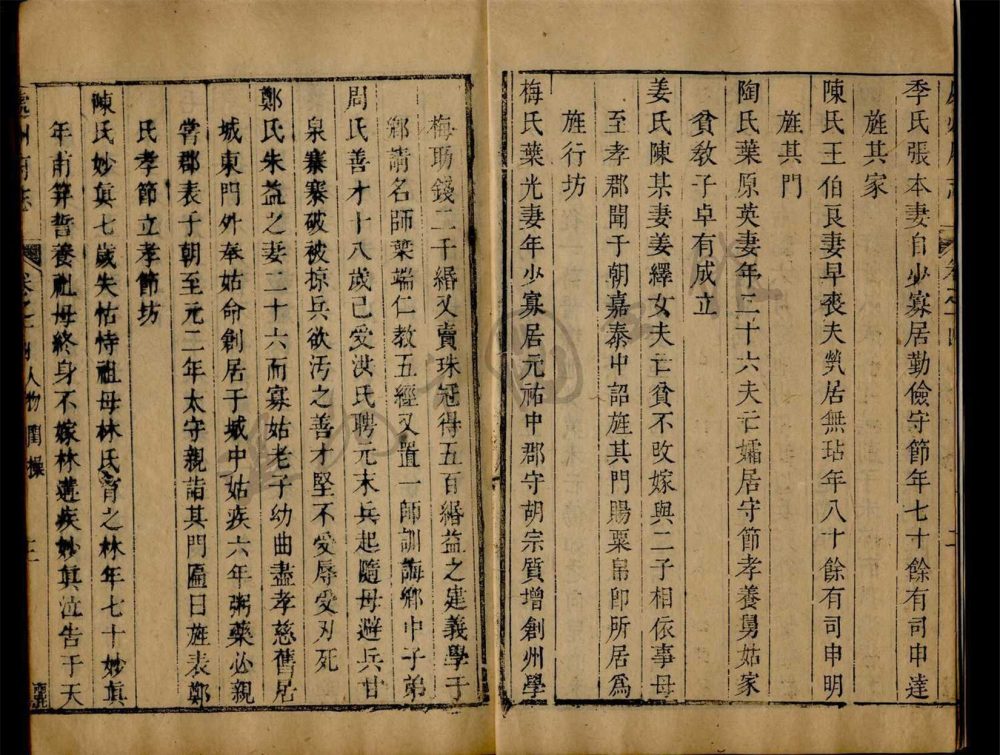 季氏張本妻自少寡居勤儉守節年七十餘有司申達
旌其家
陳氏王伯良妻早喪夫煢居無玷年八十餘有司申明
旌其門
陶氏葉原英妻年三十六夫亡孀居守節孝養舅姑家
貧敎子卓有成立
姜氏陳某妻姜繹女夫亡貧不改嫁與二子相依事母
至孝郡聞于朝嘉泰中詔旌其門賜粟帛卽所居爲
旌行坊
梅氏葉光妻年少寡居元祐中郡守胡宗質增創州學
梅助錢二千緡又賣珠冠得五百緡益之建義學于
鄉請名師葉端仁教五經又置一師訓誨鄉中子弟
周氏善才十八歲已受洪氏聘元末兵起隨母避兵甘
泉寨寨破被掠兵欲汚之善才堅不受辱受刃死
鄭氏朱益之妻二十六而寡姑老子幼曲盡孝慈舊居
城東門外奉姑命創居于城中姑疾六年粥藥必親
嘗郡表于朝至元二年太守親詣其門匾曰旌表鄭
氏孝節立孝節坊
陳氏妙眞七歲失怙恃祖母林氏育之林年七十妙眞
年甫笄誓養祖母終身不嫁林遘疾妙眞泣告于天
處州府志
卷之十四人物閨操
三